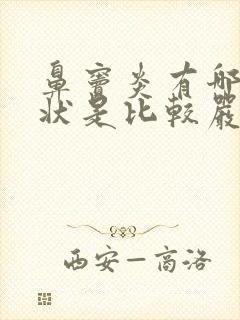 鼻竇炎有哪
狀是比較嚴
西安–高洛